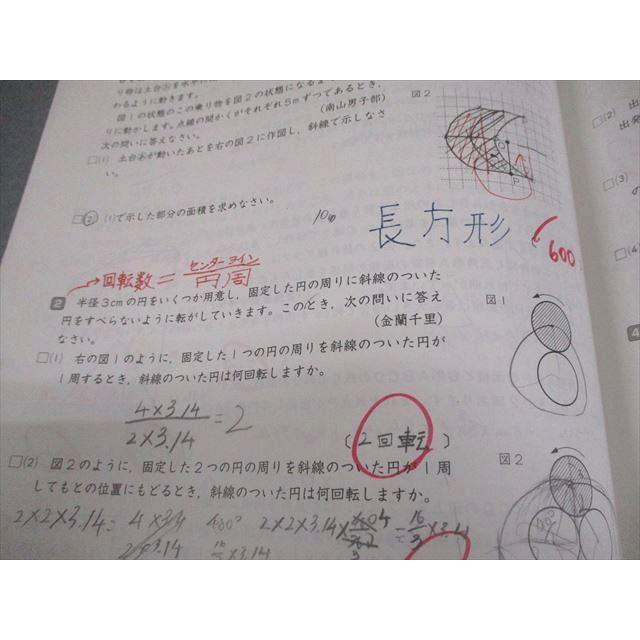 り物は土台㋐を水平に
わるように動きます。
図1の状態のこの乗り物を図2の状態になるよ
りに動かします。点線の間かくがそれぞれ5mずつであるとき,
次の問いに答えなさい。
(南山男子部)
図2
□(1) 土台㋐が動いたあとを右の図2に作図し,斜線で示しなさ
い。
□(2) (1)で示した部分の面積を求めなさい。
長方形
600
→回転数=センターライン/円周
2 半径3cmの円をいくつか用意し,固定した円の周りに斜線のついた
円をすべらないように転がしていきます。このとき,次の問いに答え
なさい。
(金蘭千里)
図1
□(1) 右の図1のように,固定した1つの円の周りを斜線のついた円が
1周するとき,斜線のついた円は何回転しますか。
4×3.14/2×3.14=2
〔2回転〕
□(2) 図2のように,固定した2つの円の周りを斜線のついた円が1周
してもとの位置にもどるとき,斜線のついた円は何回転しますか。
図2
2×2×3.14=
480°
2×2×3.14×
□(2)
出発
□(3)
□(4)
4